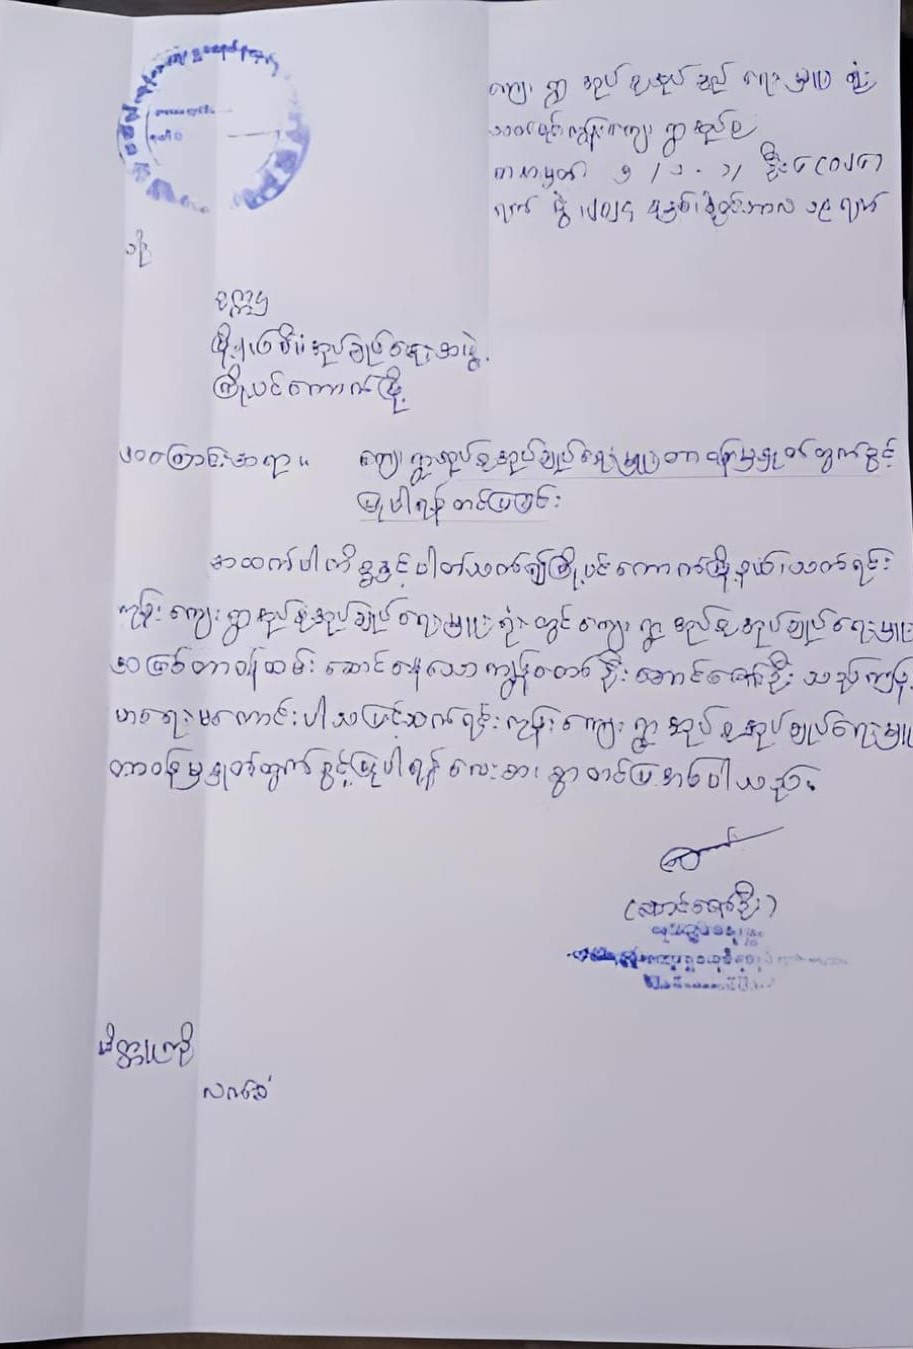 ကျေးရွာအုပ်စုအုပ်ချုပ်ရေးမှူးရုံး
ကျေးရွာအုပ်စု
စာအမှတ် ၅ / ၁ - ၁ / ဦး ၆ (၀၂၈)
ရက်စွဲ ၊ ၂၀၂၄ ခုနှစ်၊ ဒီဇင်ဘာလ ၁၉ ရက်
သို့
ဥက္ကဌ
မြို့နယ်စီမံအုပ်ချုပ်ရေးအဖွဲ့
ကြို့ပင်ကောက်မြို့
အကြောင်းအရာ ။ ကျေးရွာအုပ်စုအုပ်ချုပ်ရေးမှူးတာဝန်မှနှုတ်ထွက်ခွင့်
ပြုပါရန် တင်ပြခြင်း
အထက်ပါကိစ္စနှင့်ပါတ်သက်၍ကြို့ပင်ကောက်မြို့နယ်၊သက်ရင်း
ကုန်းကျေးရွာအုပ်စုအုပ်ချုပ်ရေးမှူးရုံးတွင်ကျေးရွာအုပ်စုအုပ်ချုပ်ရေးမှူး
အဖြစ်တာဝန်ထမ်းဆောင်နေသောကျွန်တော်ဦးအောင်ဇော်ဦးသည်ကျန်း
မာရေးမကောင်းပါသဖြင့်သက်ရင်းကုန်းကျေးရွာအုပ်စုအုပ်ချုပ်ရေးမှူး
တာဝန်မှနှုတ်ထွက်ခွင့်ပြုပါရန်လေးစားစွာတင်ပြအပ်ပါသည်။
(အောင်ဇော်ဦး)
မိတ္တူကို
လက်ခံ